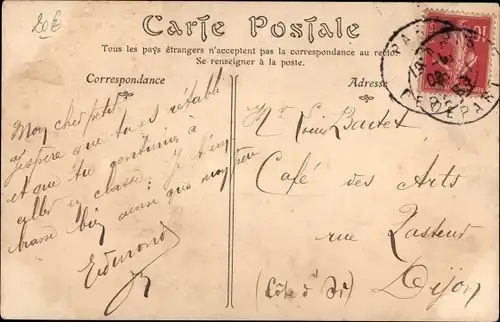 20€
Carte Postale
Tous les pays étrangers n'acceptent pas la correspondance au recto
Se renseigner à la poste.
Correspondance
Mon cher petit
J'espère que tu es rétabli
et que tu continues à
aller en classe. Je t'em
brasse bien ainsi que
Edmond
Adresse
Mr Louis Bartet
Café des Arts
rue Pasteur
Dijon
(Côte d'Or)
PARIS
DEPART
10